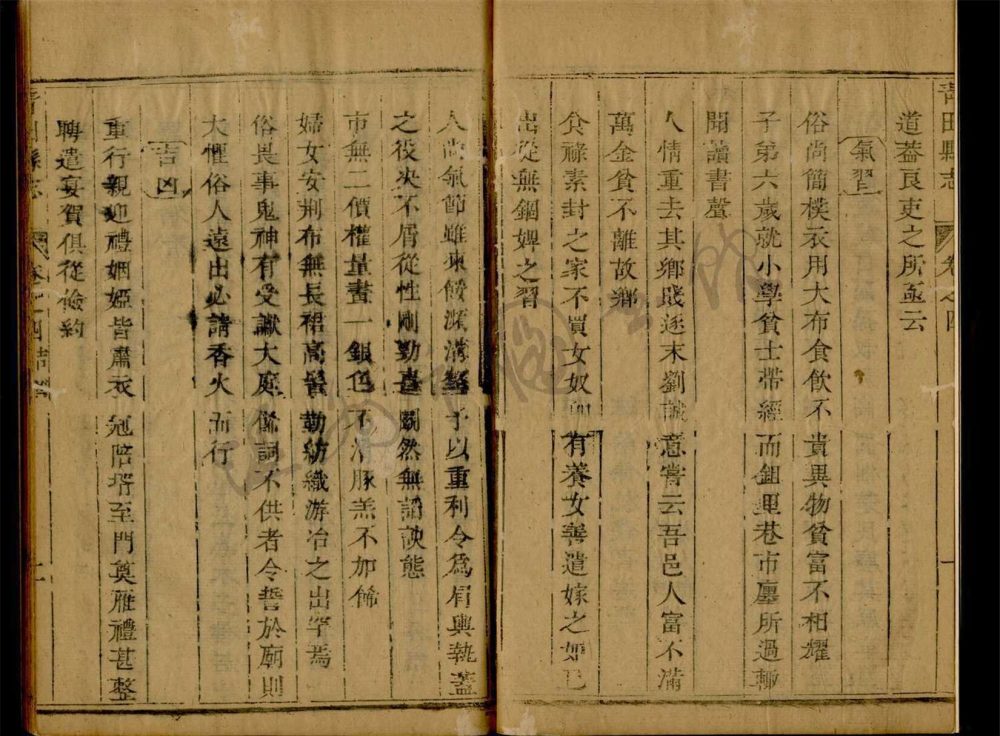 青田縣志
卷之四
一
道葢良吏之所亟云
氣習
俗尚簡樸衣用大布食飲不貴異物貧富不相耀
子弟六歲就小學貧士帶經而鉏里巷市廛所過輒
聞讀書聲
人情重去其鄉賤逐末劉誠意嘗云吾邑人富不滿
萬金貧不離故鄉
食祿素封之家不買女奴 有養女善遣嫁之如己
出從無錮婢之習
人尚氣節雖凍餒瀕溝壑予以重利令爲肩輿執蓋
之役决不屑從性剛勁 闒然無諂諛態
市無二價權量畫一銀色不淆豚羔不加飾
婦女安荆布無長裙高髻勤紡織游冶之出罕焉
俗畏事鬼神有受讞大庭 詞不供者令誓於廟則
大懼俗人遠出必請香火而行
吉凶
重行親迎禮姻婭皆肅衣冠陪壻至門奠雁禮甚整
聘遣宴賀俱從儉約
青田縣志
卷之四
二